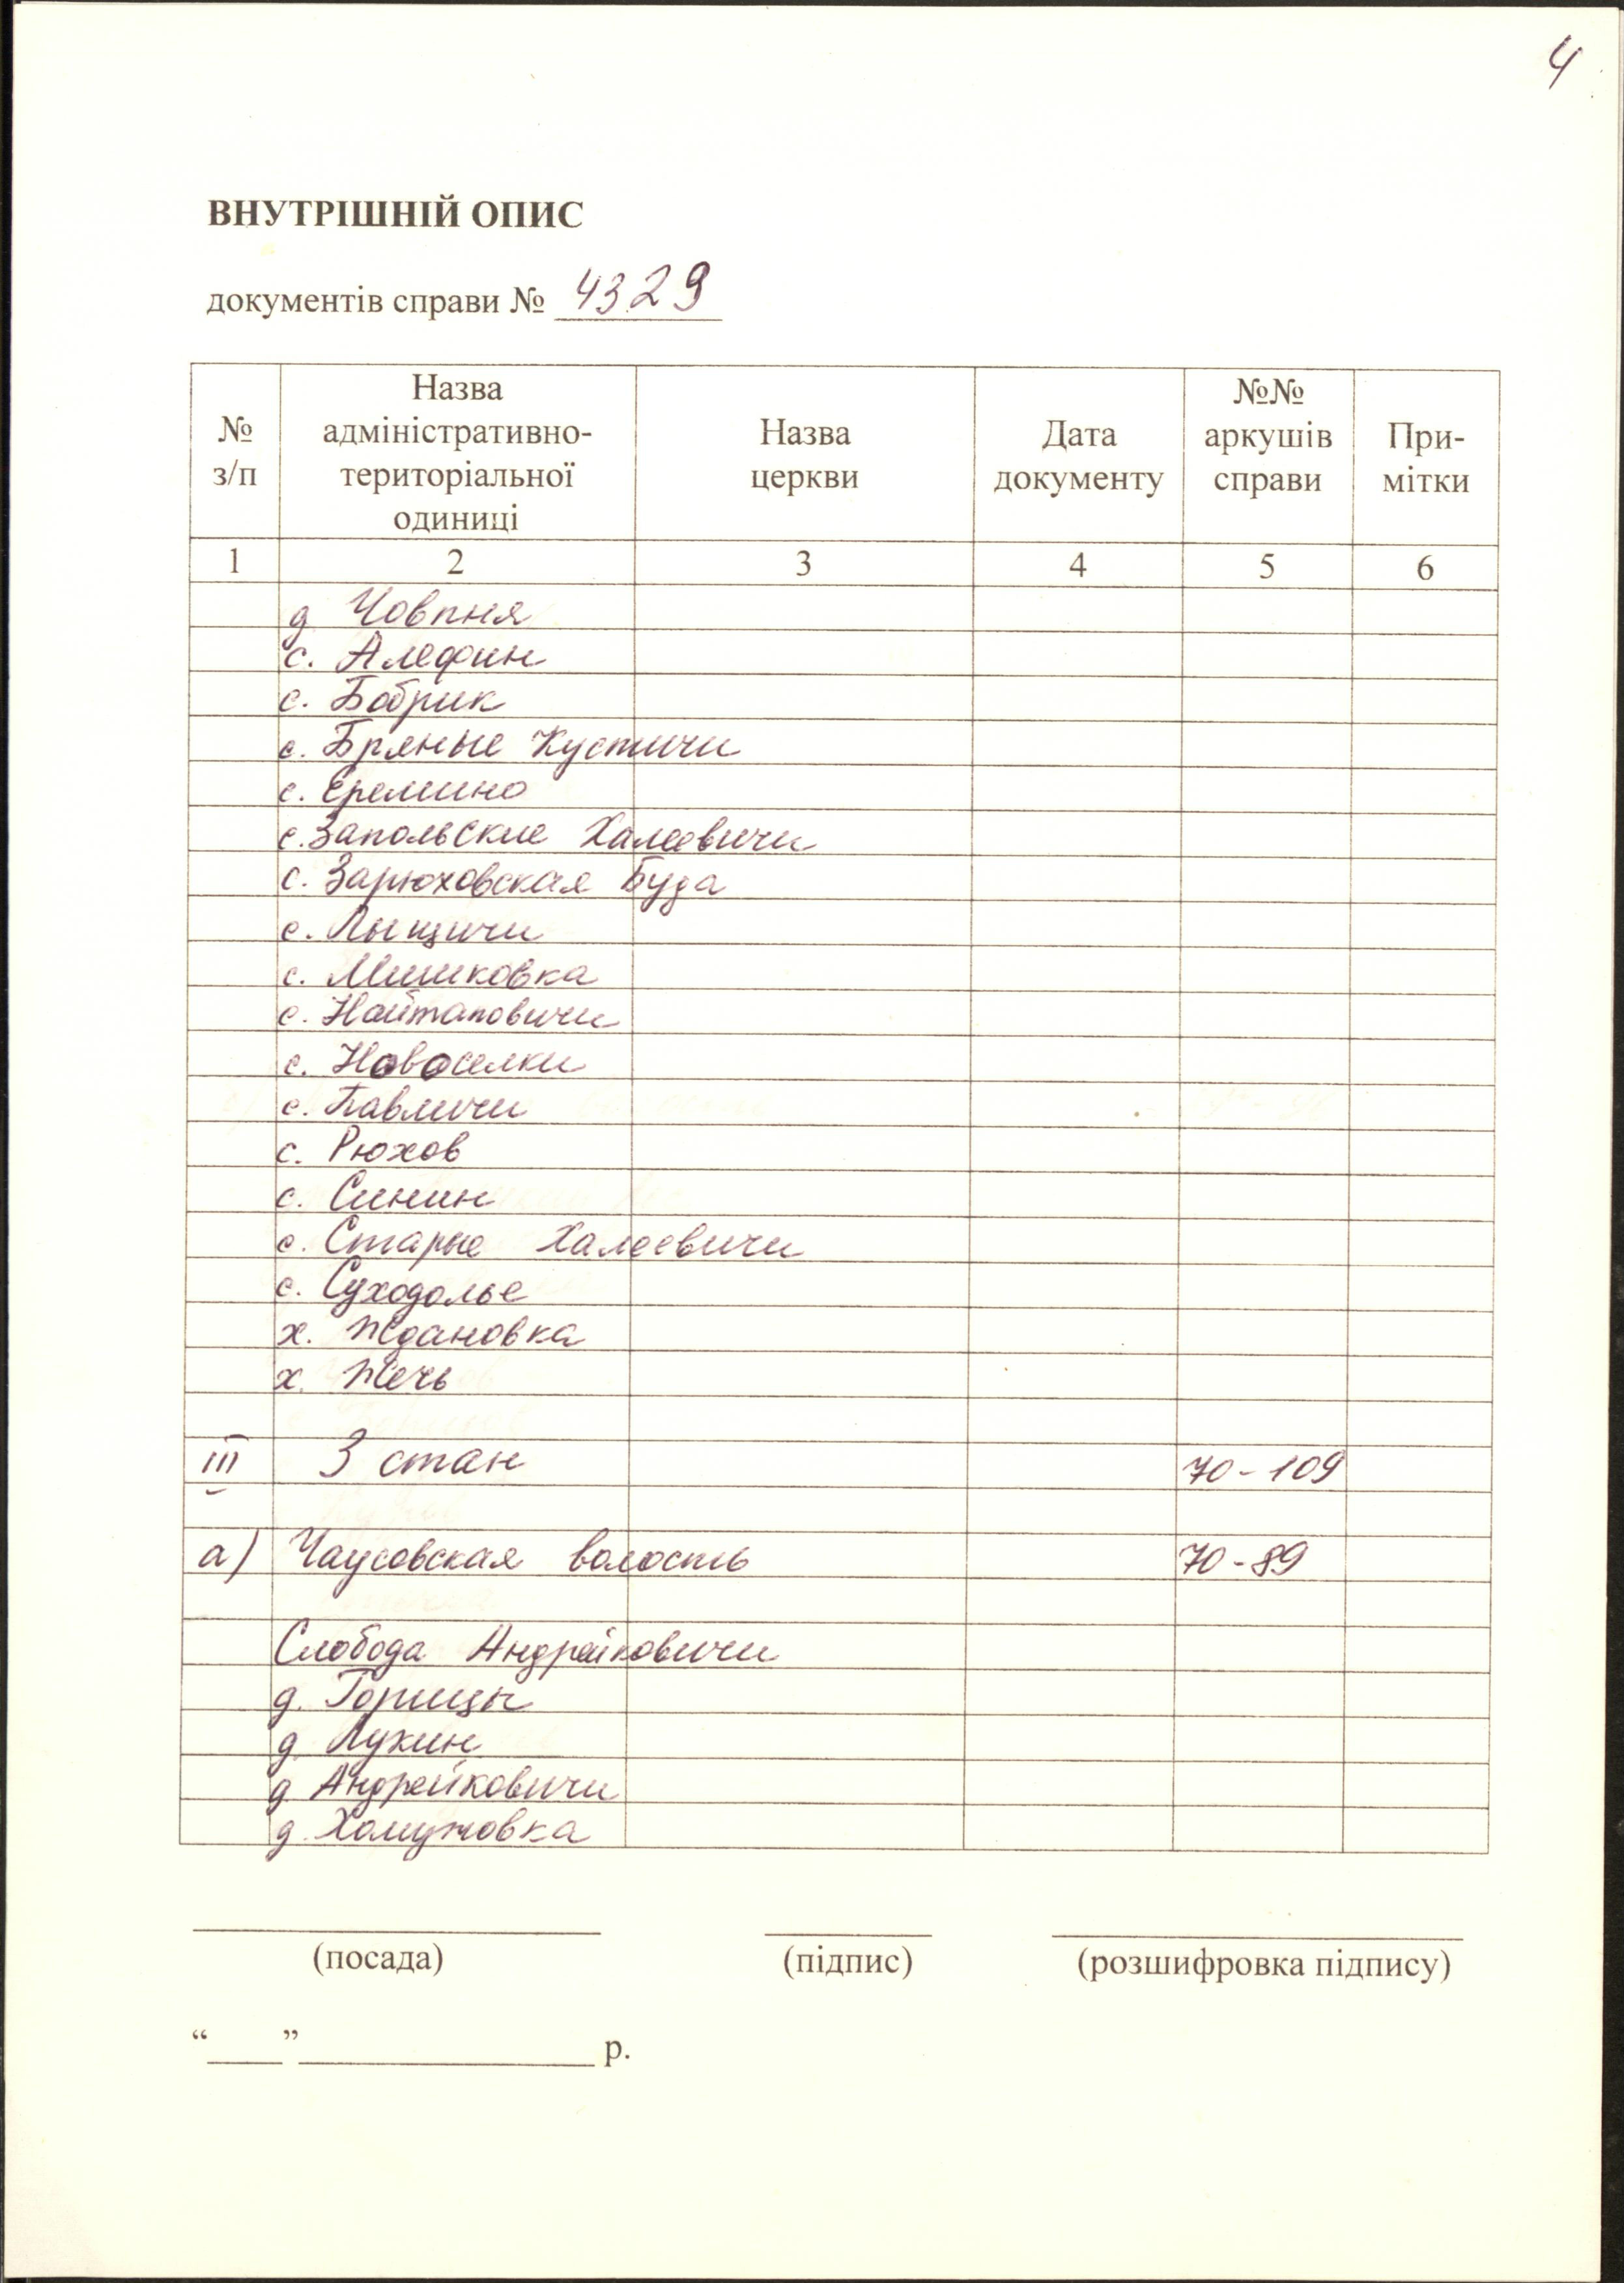 4
ВНУТРІШНІЙ ОПИС
документів справи № 4329
№ з/п
Назва адміністративно-територіальної одиниці
Назва церкви
Дата документу
№№ аркушів справи
При-мітки
1 2 3 4 5 6
д Човпня
с. Алефин
с. Бобрик
с. Бряные Кустичи
с. Еремино
с. Запольские Халеевичи
с. Зарюховская Буда
с. Лыщичи
с. Мишковка
с. Найтаповичи
с. Новоселки
с. Павличи
с. Рюхов
с. Синин
с. Старые Халеевичи
с. Суходолье
х. Ждановка
х. Жечь
III 3 стан 70-109
а) Чаусовская волость 70-89
Слобода Андрейковичи
д. Горицы
д Лукин
д Андрейковичи
д. Хомутовка
(посада) (підпис) (розшифровка підпису)
“____”________________ р.